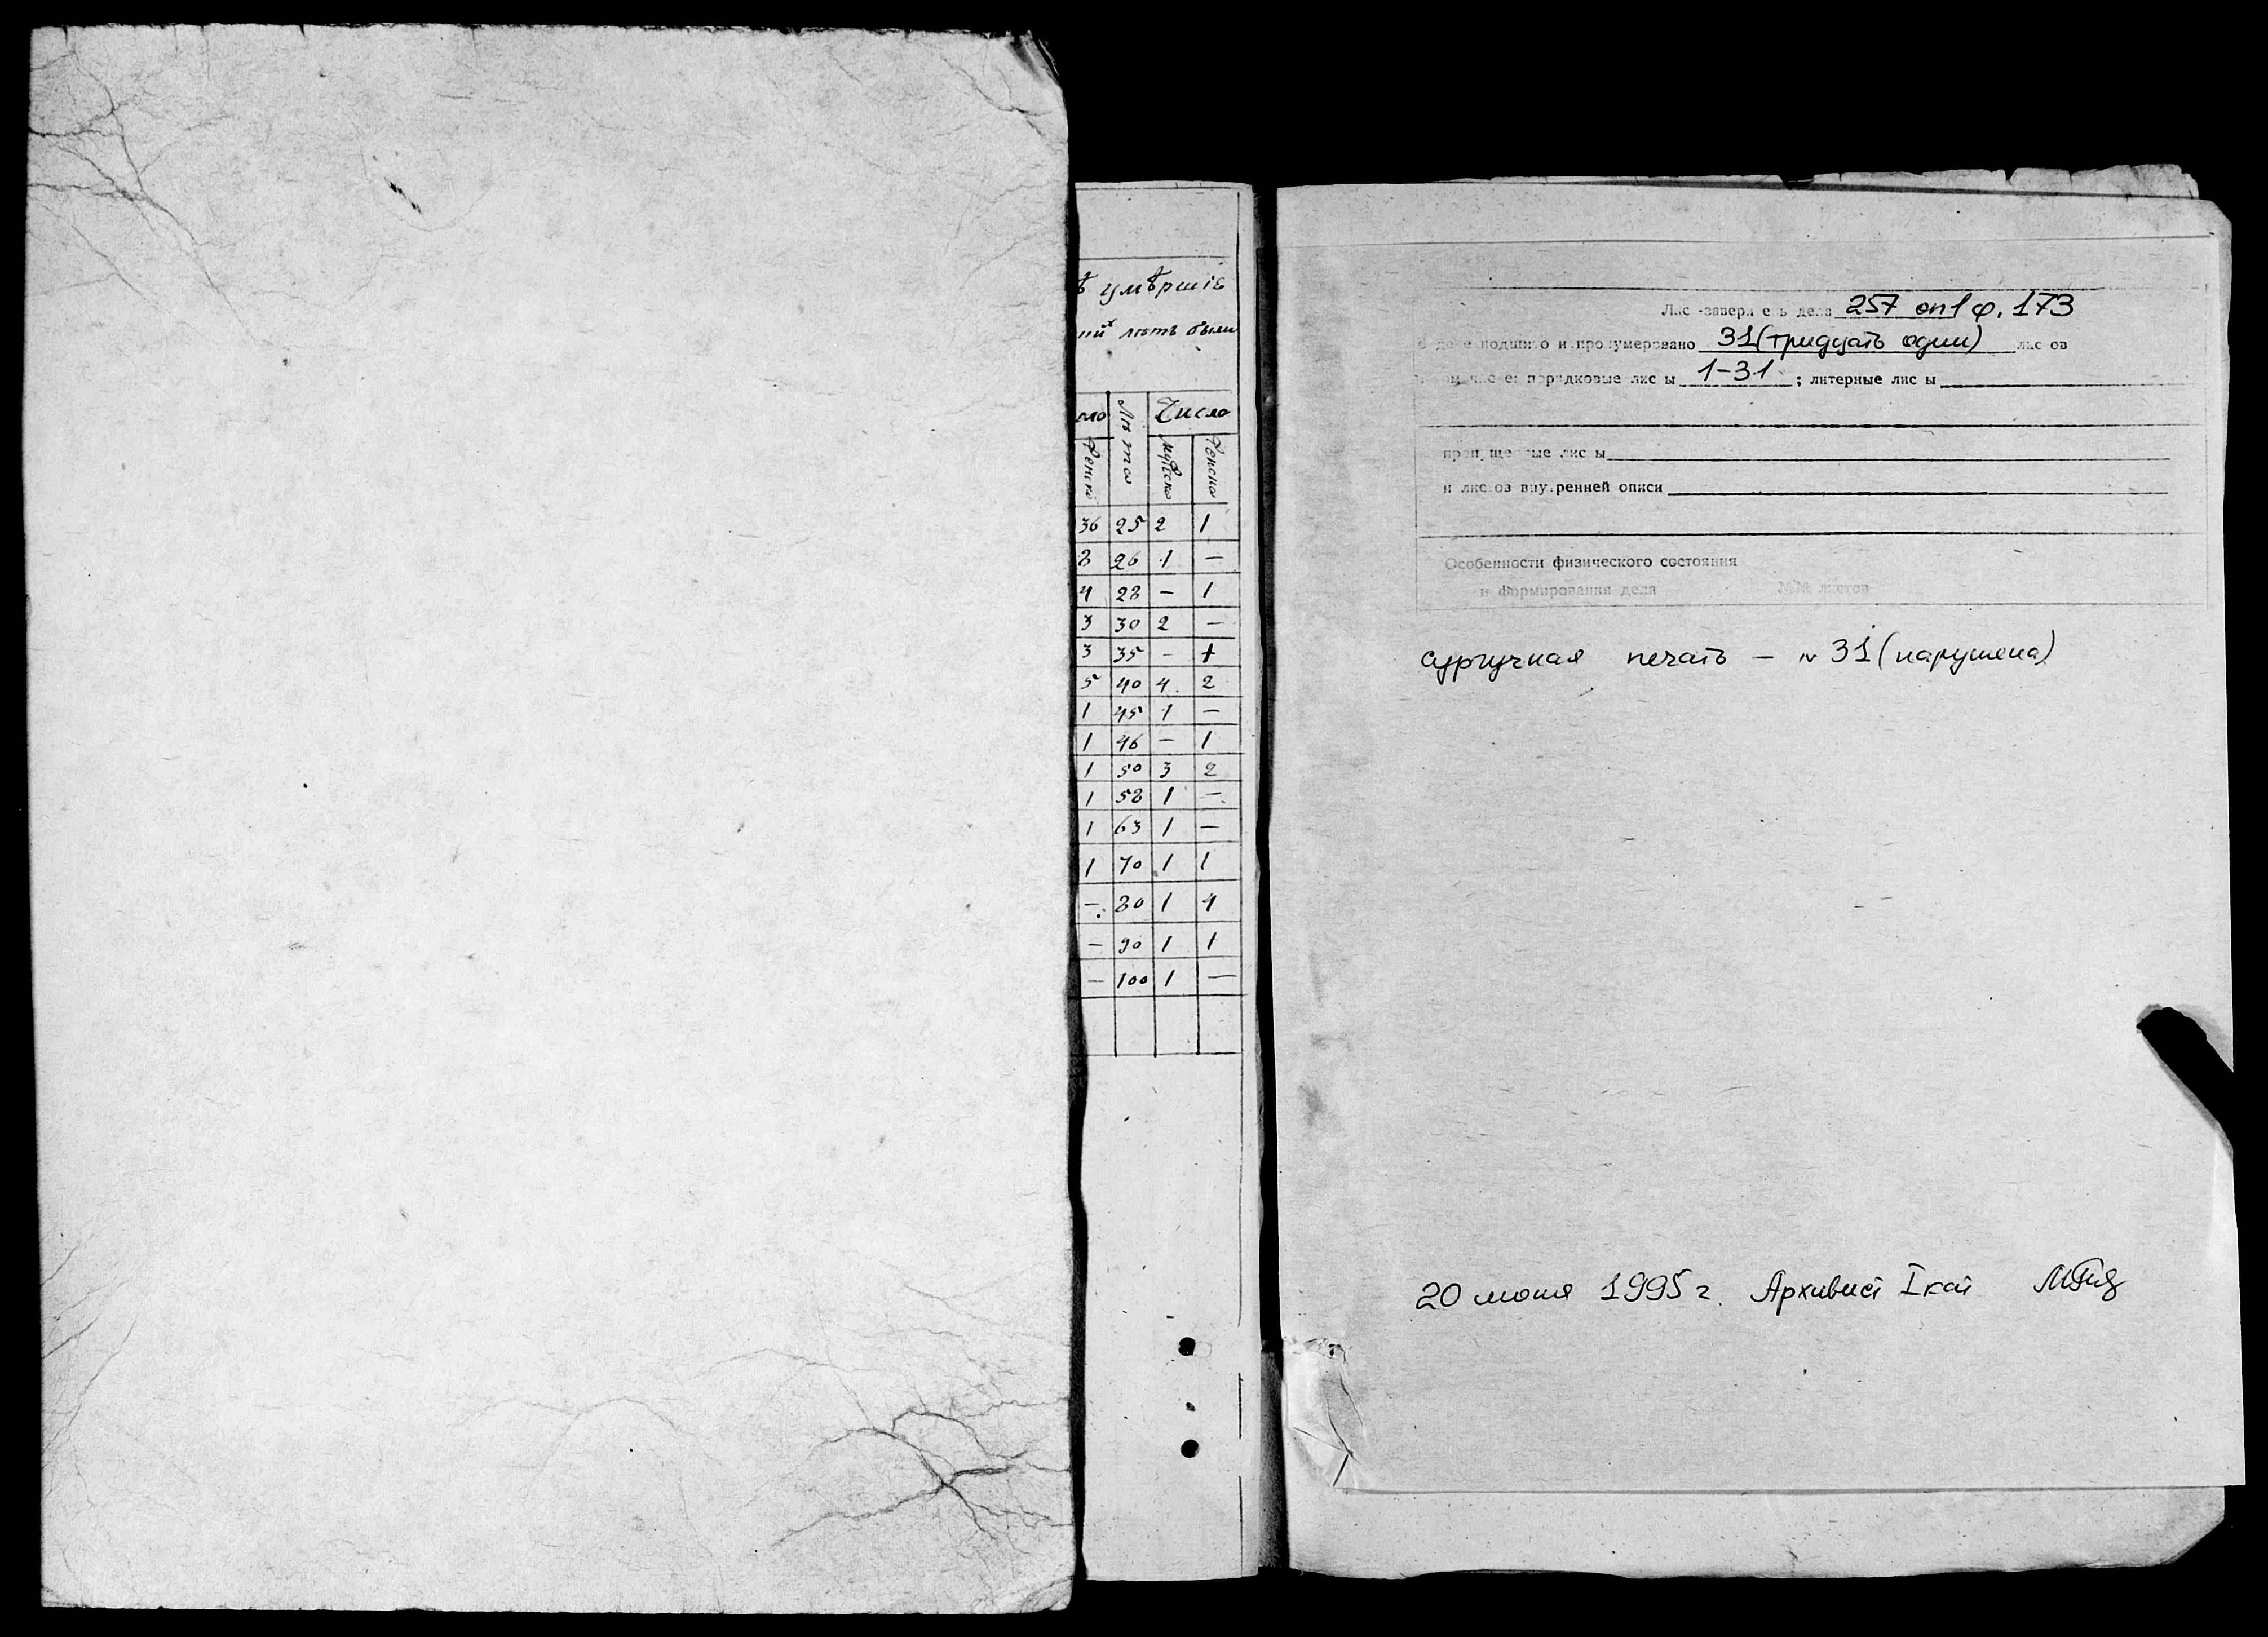 умѣршіе
лѣтъ были
Лѣта Число
женска мужеска женска
36 25 2 1
8 26 1 —
4 28 — 1
3 30 2 —
3 35 — 1
5 40 4 2
1 45 1 —
1 46 — 1
1 50 3 2
1 58 1 —
1 63 1 —
1 70 1 1
— 80 1 4
— 90 1 1
— 100 1 —
Лист-заверитель дела 257 оп1 ф. 173
В деле подшито и пронумеровано 31 (тридцать один) листов
порядковые листы 1-31 ; литерные листы
пропущенные листы
и листов внутренней описи
Особенности физического состояния
и формирования дела №№ листов
сургучная печать — 31 (нарушена)
20 июня 1995 г. Архивист I кат